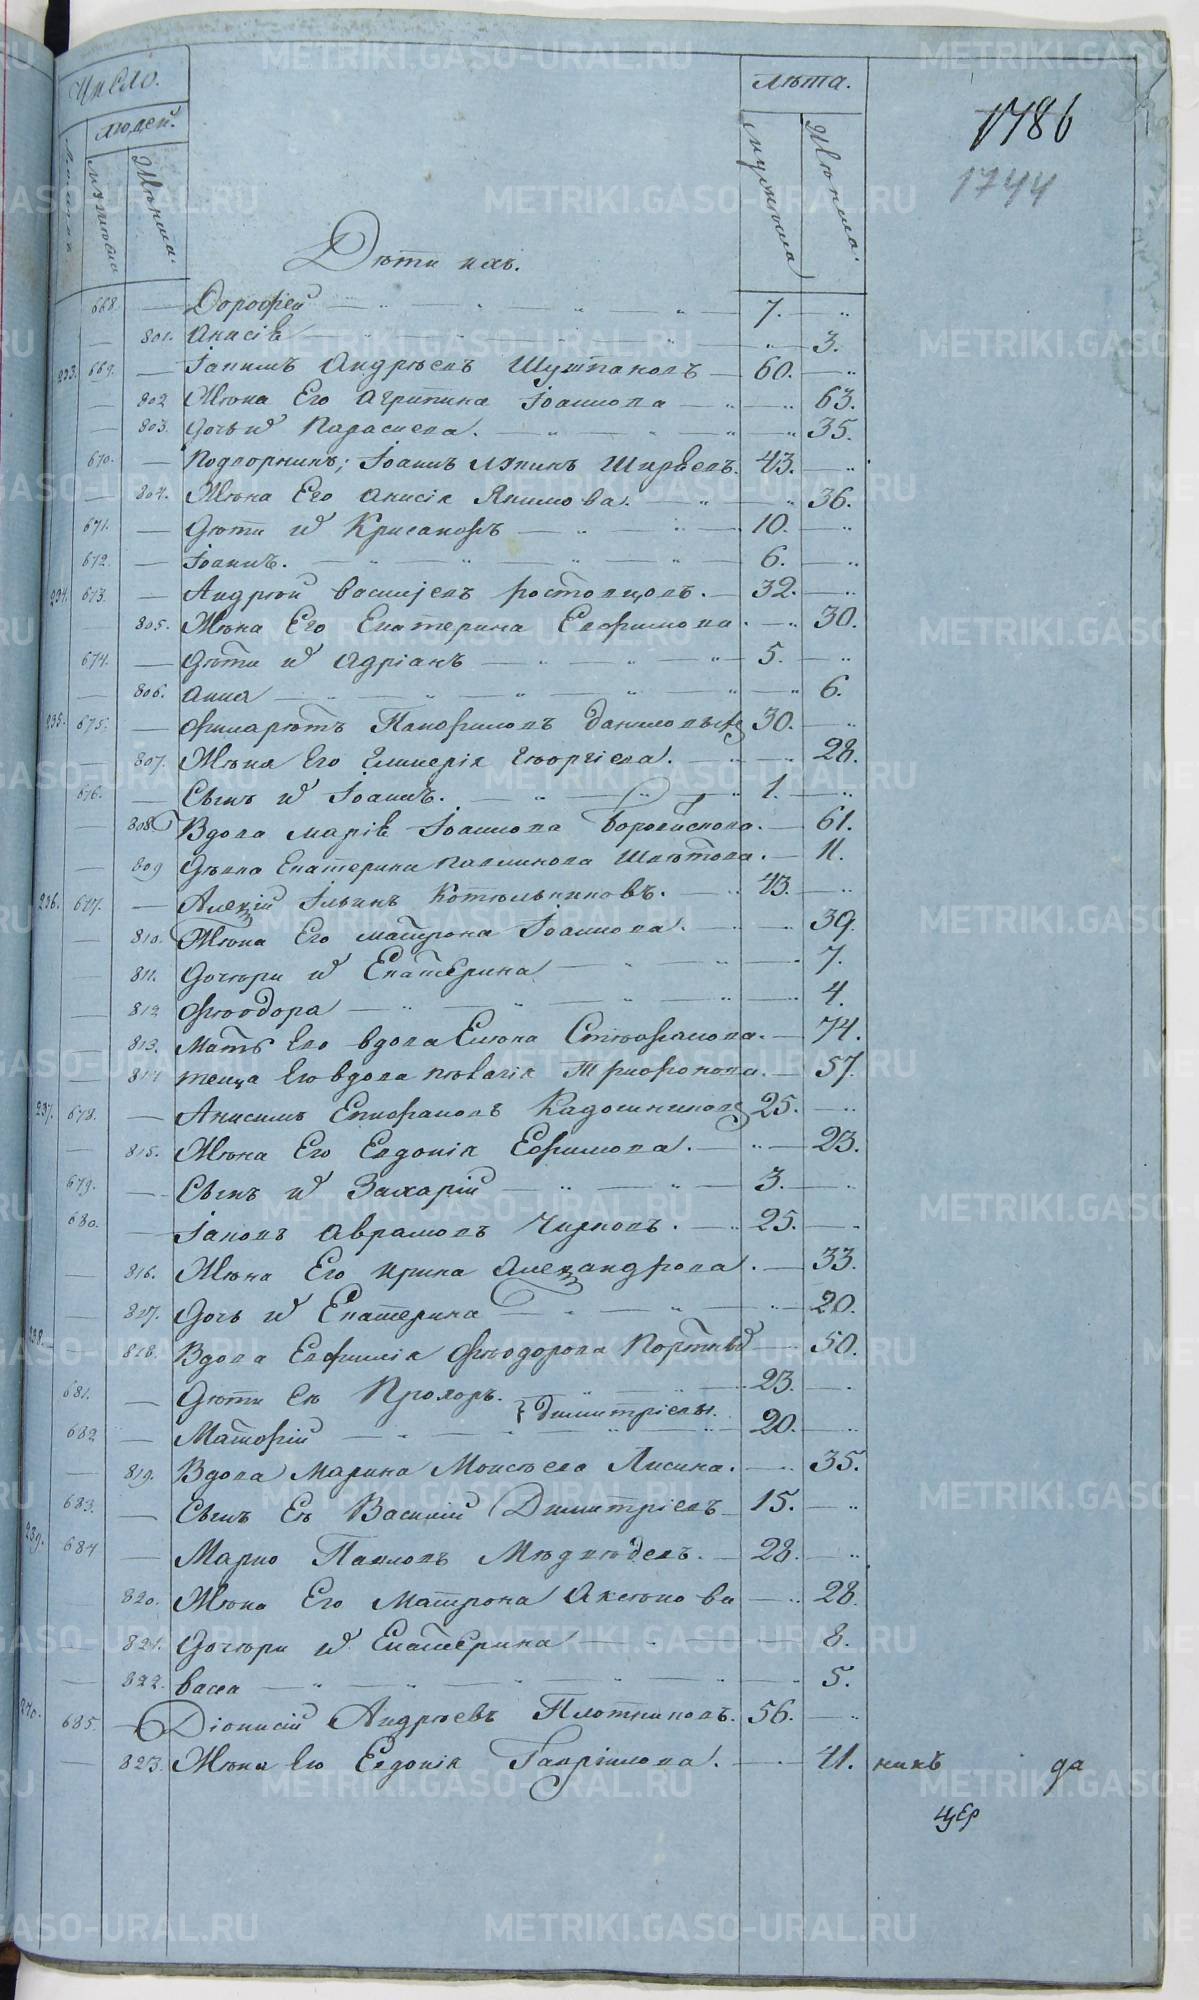 Число.
людей.
лѣта.
Женска.
мужеска
Женска.
1786
1744
Дѣти ихъ.
668. — Дорофей — 7. —
801. Анисія — 3.
233. 669. — Іакимъ Андреевъ Шутпановъ — 60. —
802 Жена Его Агрипина Іоаннова — 63.
803. Дочь их Параскева. — 35.
670. — Іоаннъ 43. —
804. Жена Его Анисія Якимова. — 36.
671. — Дети их Крисанфъ — 10. —
672. — Іоаннъ. — 6. —
234. 673. — Андрей Василіевъ Ростовцовъ. — 32. —
805. Жена Его Екатерина Евфимова. — 30.
674. — Дети их Адріанъ — 5. —
806. Анна — 6.
235. 675. — Филаретъ Панфиловъ Даниловыхъ 30. —
807. Жена Его Гликерія Георгіева. — 28.
676. — Сынъ их Іоаннъ. — 1. —
808 Вдова Марія Іоаннова — 61.
809 Девка Екатерина — 11.
236. 677. — Алексій Ильинъ Котельниковъ. — 43. —
810. Жена Его Матрона Іоаннова. — 39.
811. Дочери их Екатерина — 7.
812 Феодора — 4.
813. Мать Его вдова Елена Стефанова. — 74.
814 теща Его вдова Пелагія Трифонова. — 57
237. 678. — Анисимъ Епифановъ Кадошниковъ 25. —
815. Жена Его Евдокія Ефимова. — 23.
679. — Сынъ их Захарій — 3. —
680. — Іаковъ Аврамовъ Чирковъ. — 25. —
816. Жена Его Ирина Александрова. — 33.
817. Дочь их Екатерина — 20.
238. — 818. Вдова Евфимія Феодорова — 50.
681. — Дети Ея Прохоръ. — 23. —
} Димитріевы.
682 — Матфій — 20. —
819. Вдова Марина Моисеева Лисина. — 35.
683. — Сынъ Ея Василій Димитріевъ 15. —
239. 684 — Марко Павловъ Медведевъ. — 28. —
820. Жена Его Матрона Аксенова — 28.
821. Дочери их Екатерина — 8.
822. Васса — 5.
240. 685. — Діонисій Андреевъ Плотниковъ. 56. —
823. Жена Его Евдокія Гаврілова. — 41. никъ да
Цер